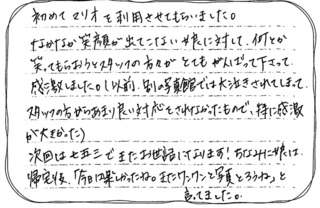 初めてマリオを利用させてもらいました。
なかなか笑顔が出てこない娘に対して、何とか
笑ってもらおうとスタッフの方々がとてもがんばって下さって、
感激しました。(以前、別の写真館では大泣きされてしまって、
スタッフの方からあまり良い対応をされなかったもので、特に感激
が大きかった)
次回は七五三でまたお世話になります!ちなみに娘は、
帰宅後、「今日は楽しかったね。またワンワンと写真とろうね」と
言ってました。